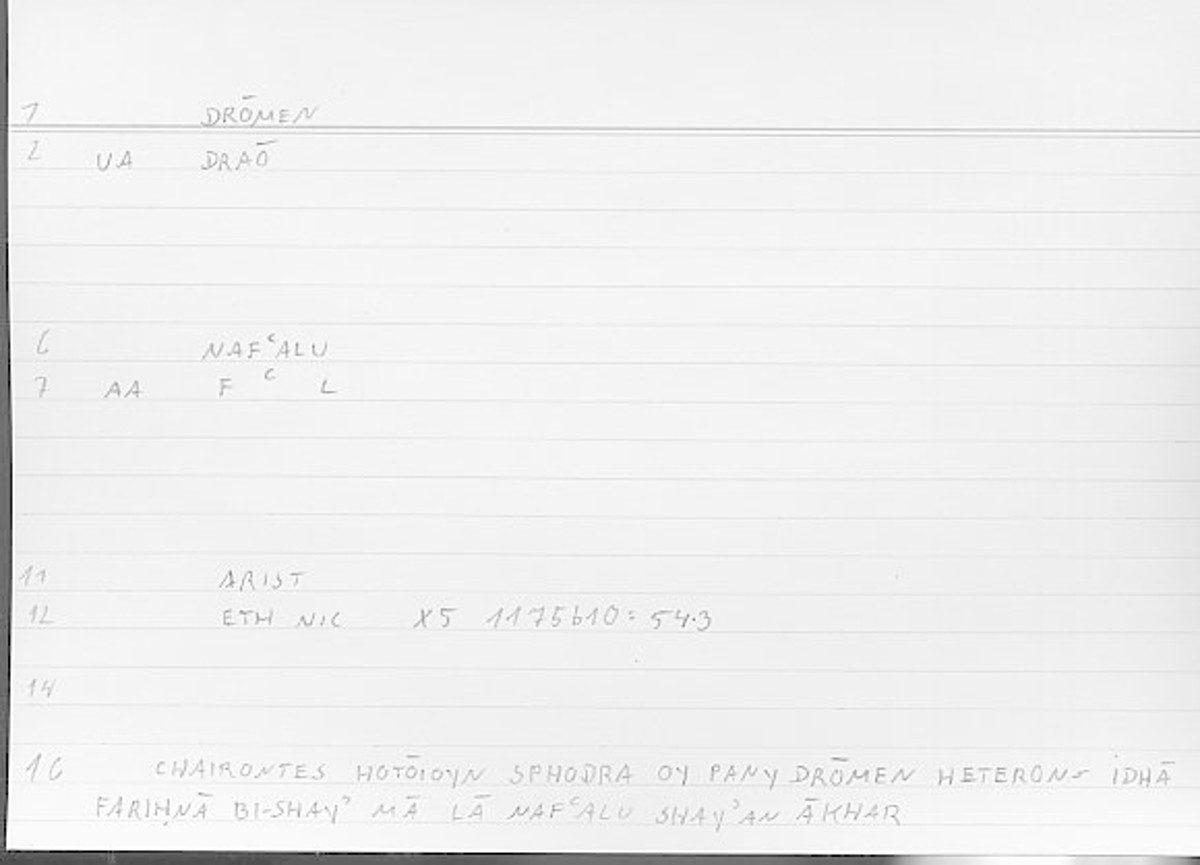 1 DRŌMEN
2 UA DRAŌ
6 NAFʿALU
7 AA F ʿ L
11 ARIST
12 ETH NIC X5 1175b10 = 54.3
14
16 CHAIRONTES HOTŌIOYN SPHODRA OY PANY DRŌMEN HETERON - IDHĀ
FARIḤNĀ BI-SHAYʾ MĀ LĀ NAFʿALU SHAYʾAN ĀKHAR